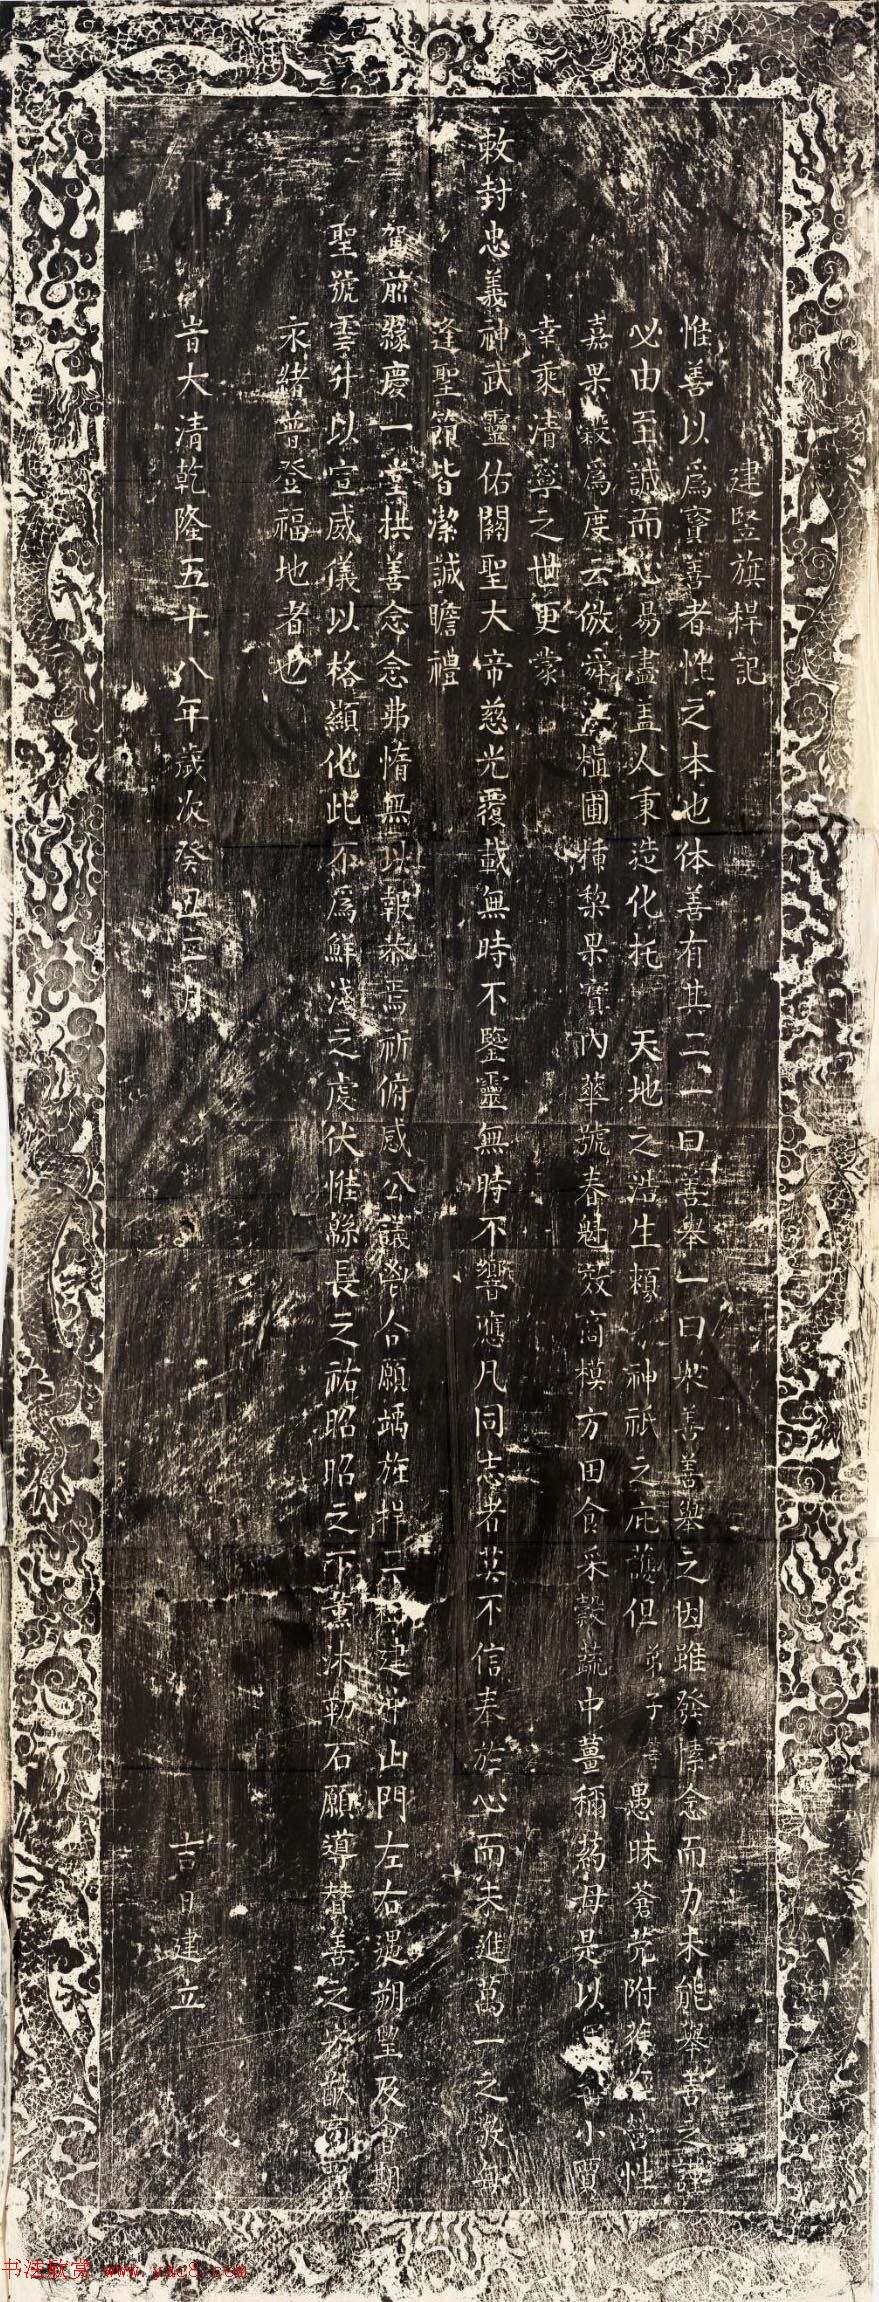 建竪旗桿記
惟善以爲寳善者性之本也体善有其二一曰善舉一曰衆善善舉之因雖發悽念而力未能舉善之謹
必由至誠而心易盡盖人秉造化托天地之浩生頼神祇之庇護但弟子等愚昧蒼茫附 性
嘉果穀爲度云倣舜 植圃種棃果實內華號春魁蔉高模方田食采穀蔬中薑稱葯母是以 小買
幸乘清寧之世更蒙
敕封忠義神武靈佑關聖大帝慈光覆載無時不鑒靈無時不響應凡同志者莫不信奉於心而未進萬一之敬每
逢聖節皆潔誠瞻禮
駕前縁慶一堂拱善念念弗惰無以報恭焉祈俯感公議 合願竪旌桿二 建于山門左右遇朔望及會期
聖號雲升以宣威儀以格顯化此不爲鮮淺之虔伏惟緜長之祐昭昭之下薰沐勒石願導賛善之
永緒普登福地者也
旹大清乾隆五十八年歲次癸丑三月 吉日建立
书法欣赏 www.yac8.com